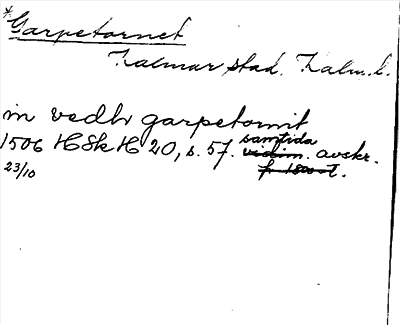 *Garpetornet
Kalmar stad. Kalm. l.
in vedh garpetornit
1506 HSkH 20, s. 57. samtida vidim. avskr.
23/10 f. 1800-t.